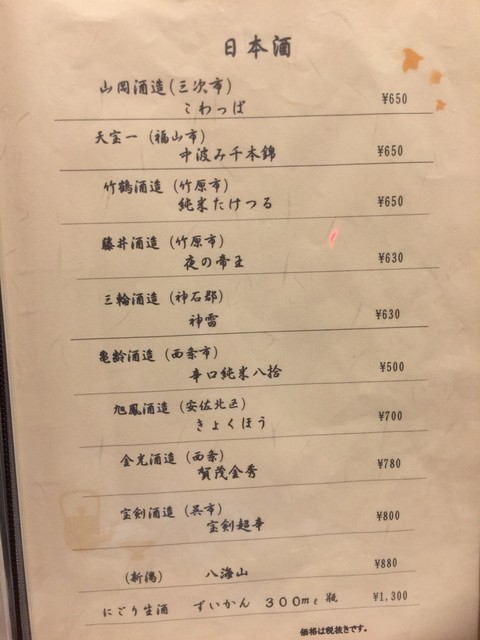 日本酒
山岡酒造(三次市)
こわっぱ ¥650
天宝一 (福山市)
中汲み千本錦 ¥650
竹鶴酒造 (竹原市)
純米たけつる ¥650
藤井酒造 (竹原市)
夜の帝王 ¥630
三輪酒造 (神石郡)
神雷 ¥630
亀齢酒造 (西条市)
辛口純米八拾 ¥500
旭鳳酒造 (安佐北区)
きょくほう ¥700
金光酒造 (西条)
賀茂金秀 ¥780
宝剣酒造 (呉市)
宝剣超辛 ¥800
(新潟) 八海山 ¥880
にごり生酒 ずいかん 300mℓ瓶 ¥1,300
価格は税抜きです。